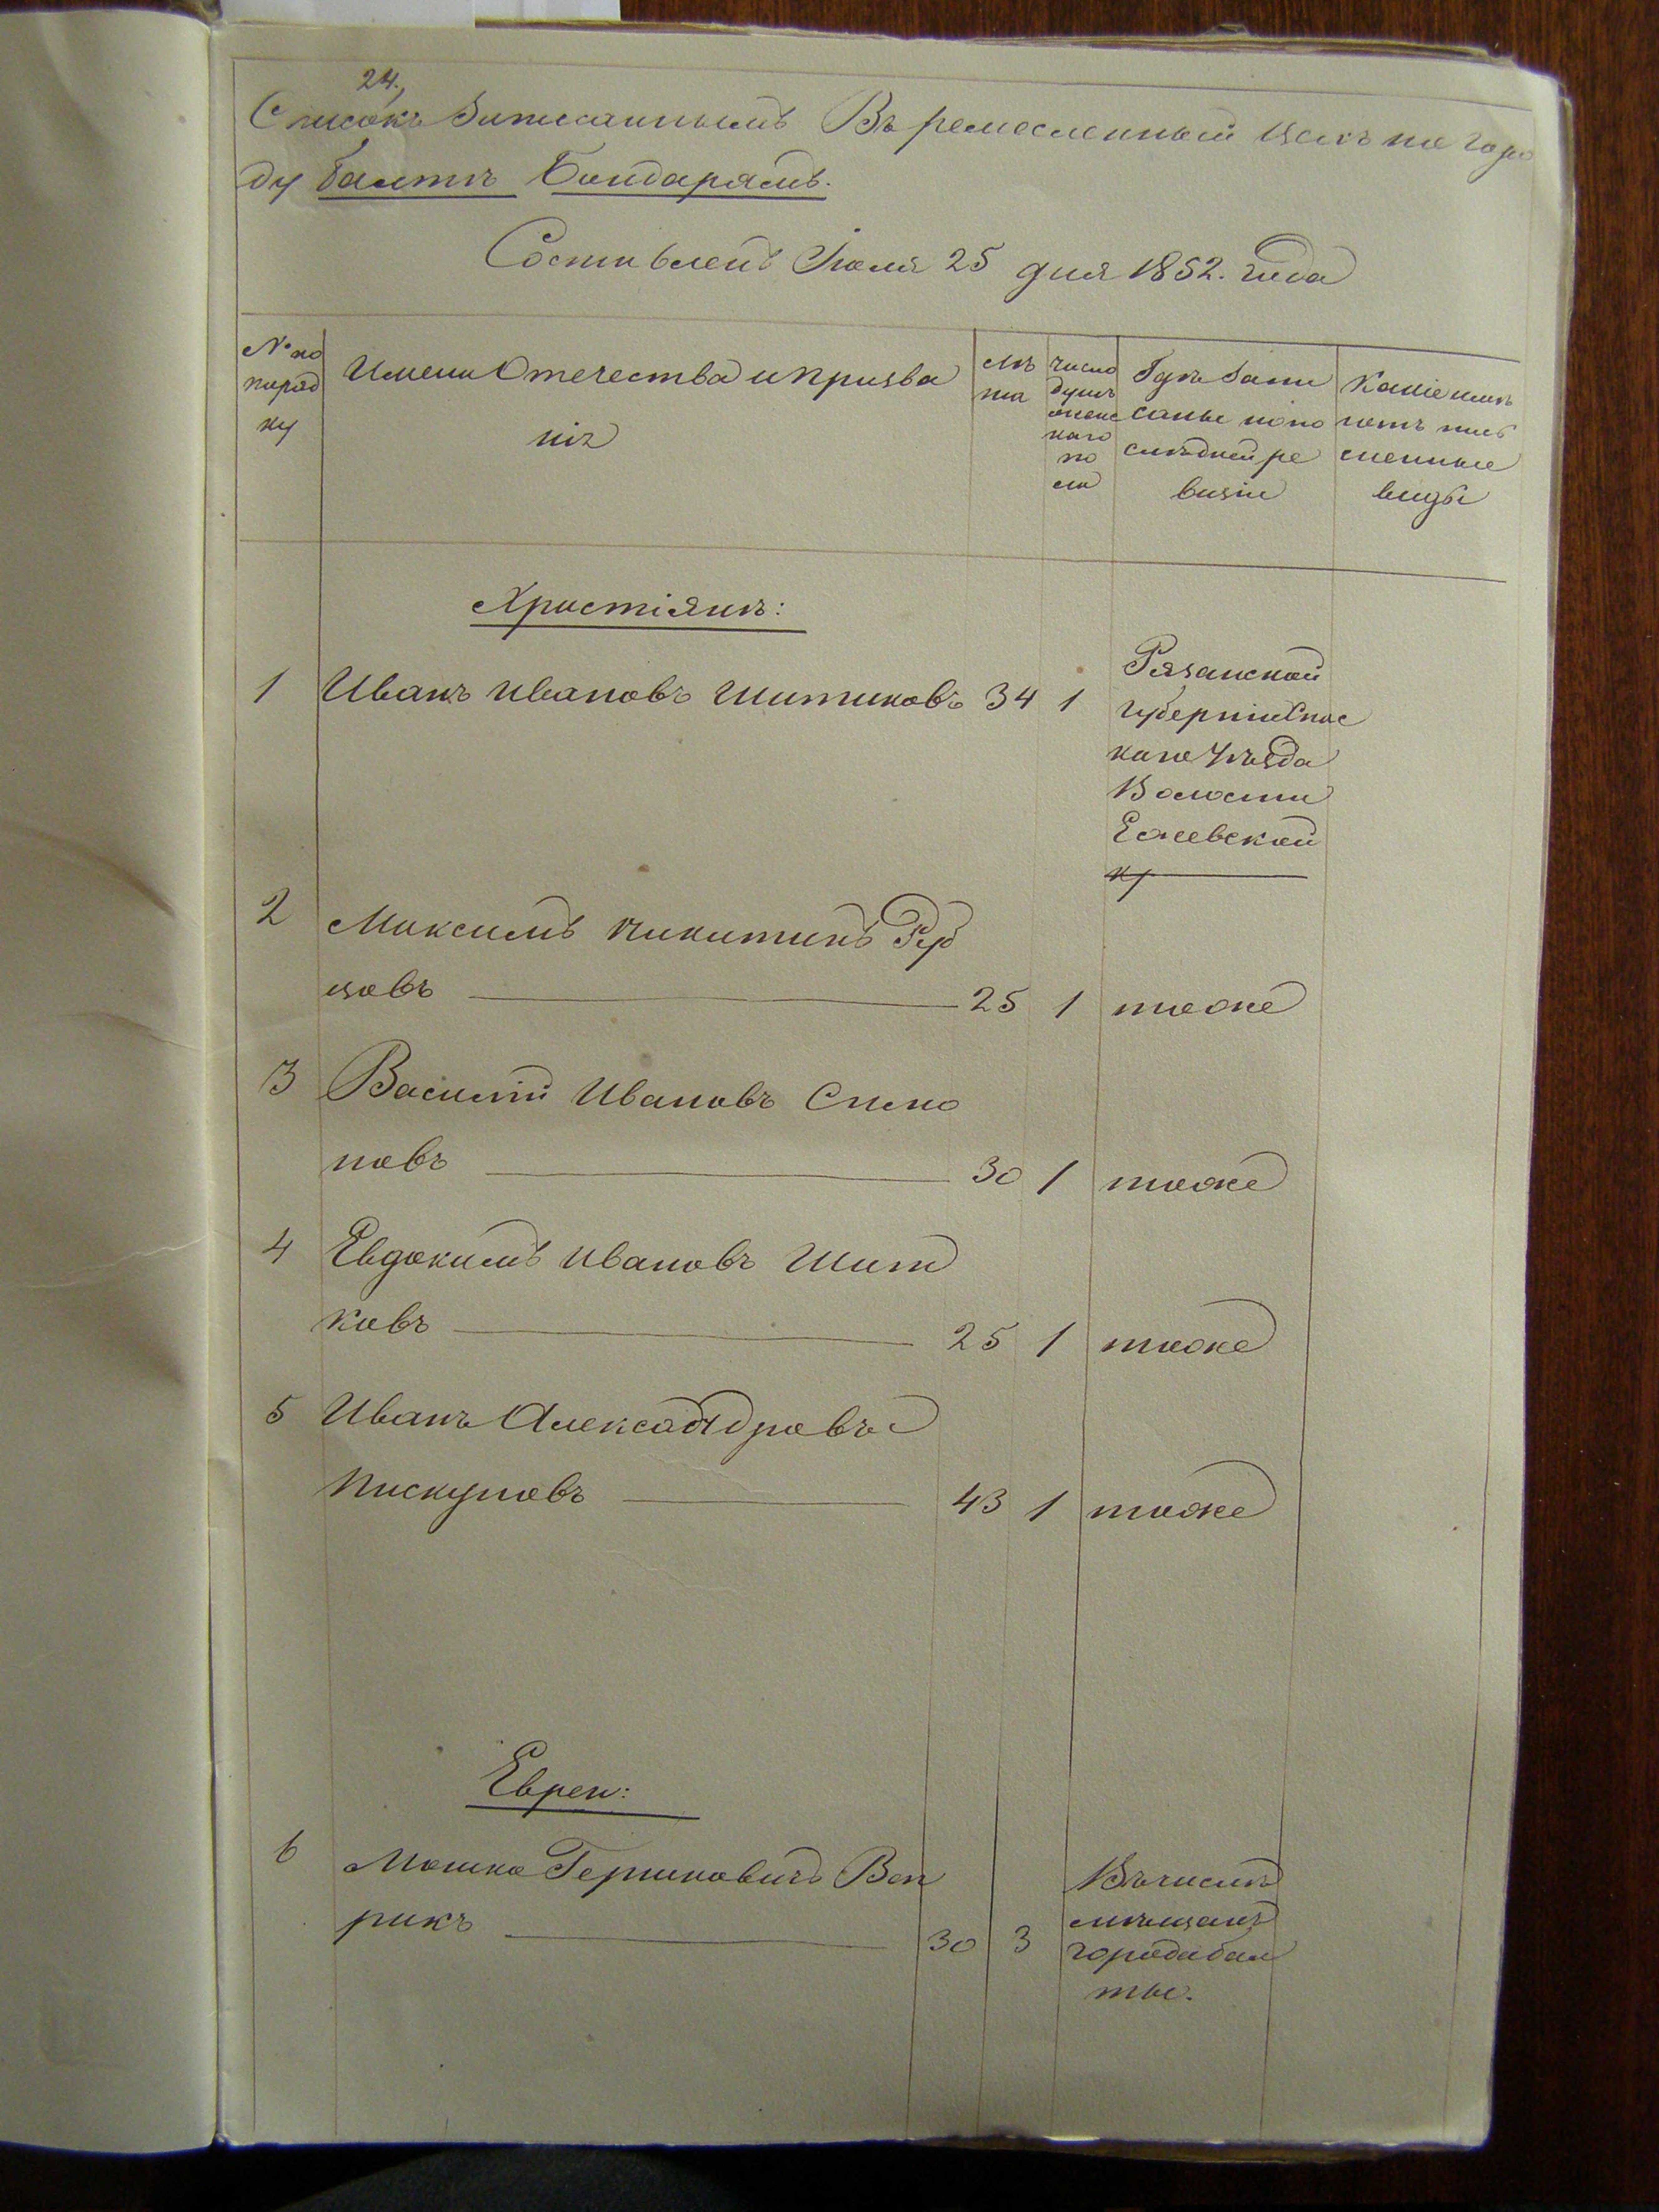 24.
Списокъ Записаннымъ Въ ремесленный Цехъ по горо
ду Балтѣ Бондарямъ.
Составленъ Іюля 25 дня 1852. года
№ по
поряд
ку
Имени Отечества и Прозва
нія
Лѣ
та
число
душъ
мужес
каго
по
ла
Гдѣ Запи
саны попо
слѣдней ре
визіи
Какіе имѣ
ютъ пись
менные
виды
Христіянъ:
1 Иванъ Ивановъ Шитиковъ 34 1
Рязанской
губерніи Спас
каго Уѣзда
Волости
Ежевской
2 Максимъ Никитинъ Руб
цовъ 25 1 тоже
3 Василій Ивановъ Спико
новъ 30 1 тоже
4 Евдокимъ Ивановъ Шит
ковъ 25 1 тоже
5 Иванъ Александровъ
Пискуновъ 43 1 тоже
Евреи:
6 Мошко Гершковичъ Вап
рикъ 30 3
Въ числѣ
мѣщанъ
города Бал
ты.